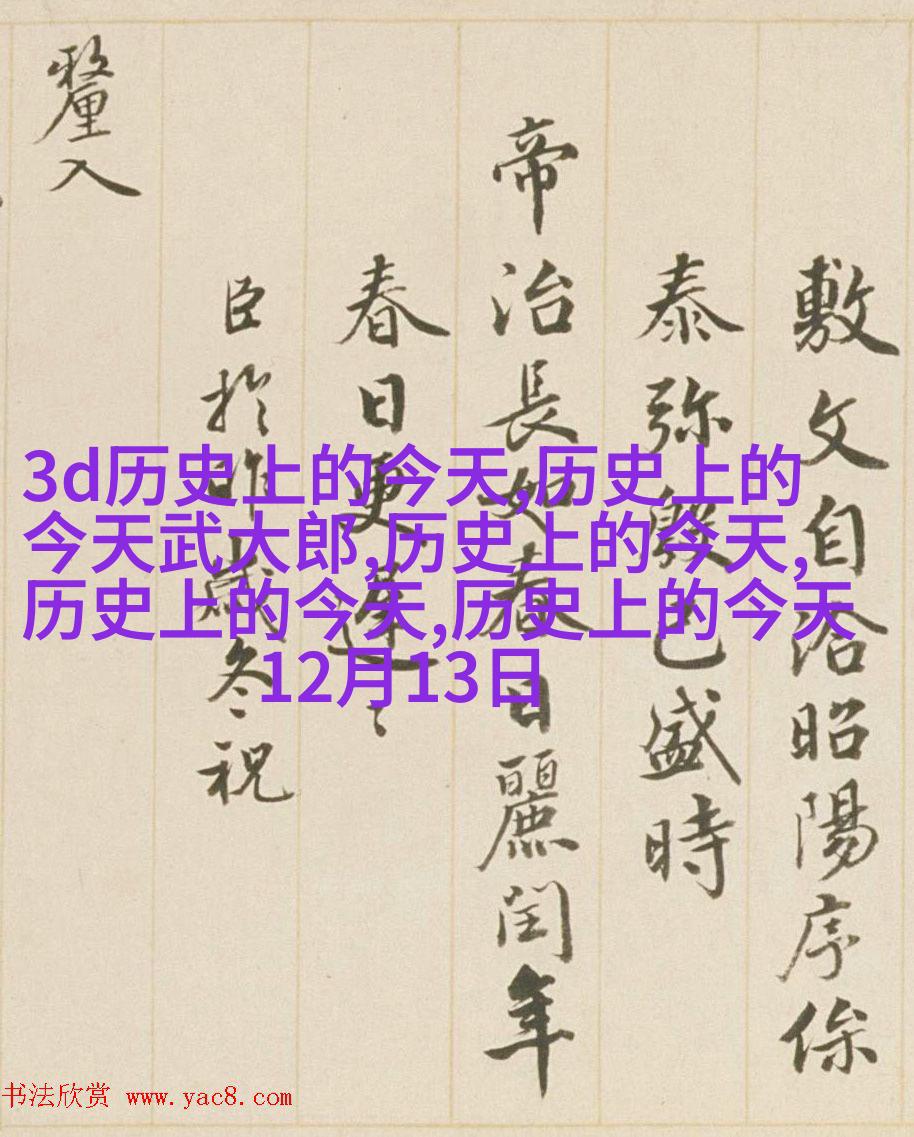 敷文自洽昭陽序條
泰弥殷已盛時
帝治長如春日麗閏年
春日更遲〻
臣於昨歲冬〻祝
釐入
3d历史上的今天,历史上的
今天武大郎,历史上的今天,
历史上的今天,历史上的今天
12月13日
书法欣赏 www.yac8.com